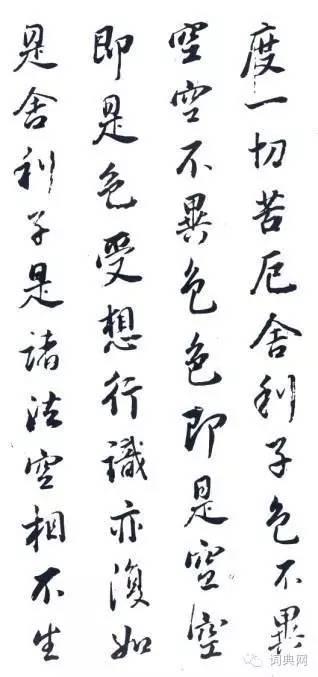 度一切苦厄舍利子色不異
空空不異色色即是空空
即是色受想行識亦復如
是舍利子是諸法空相不生
词典网